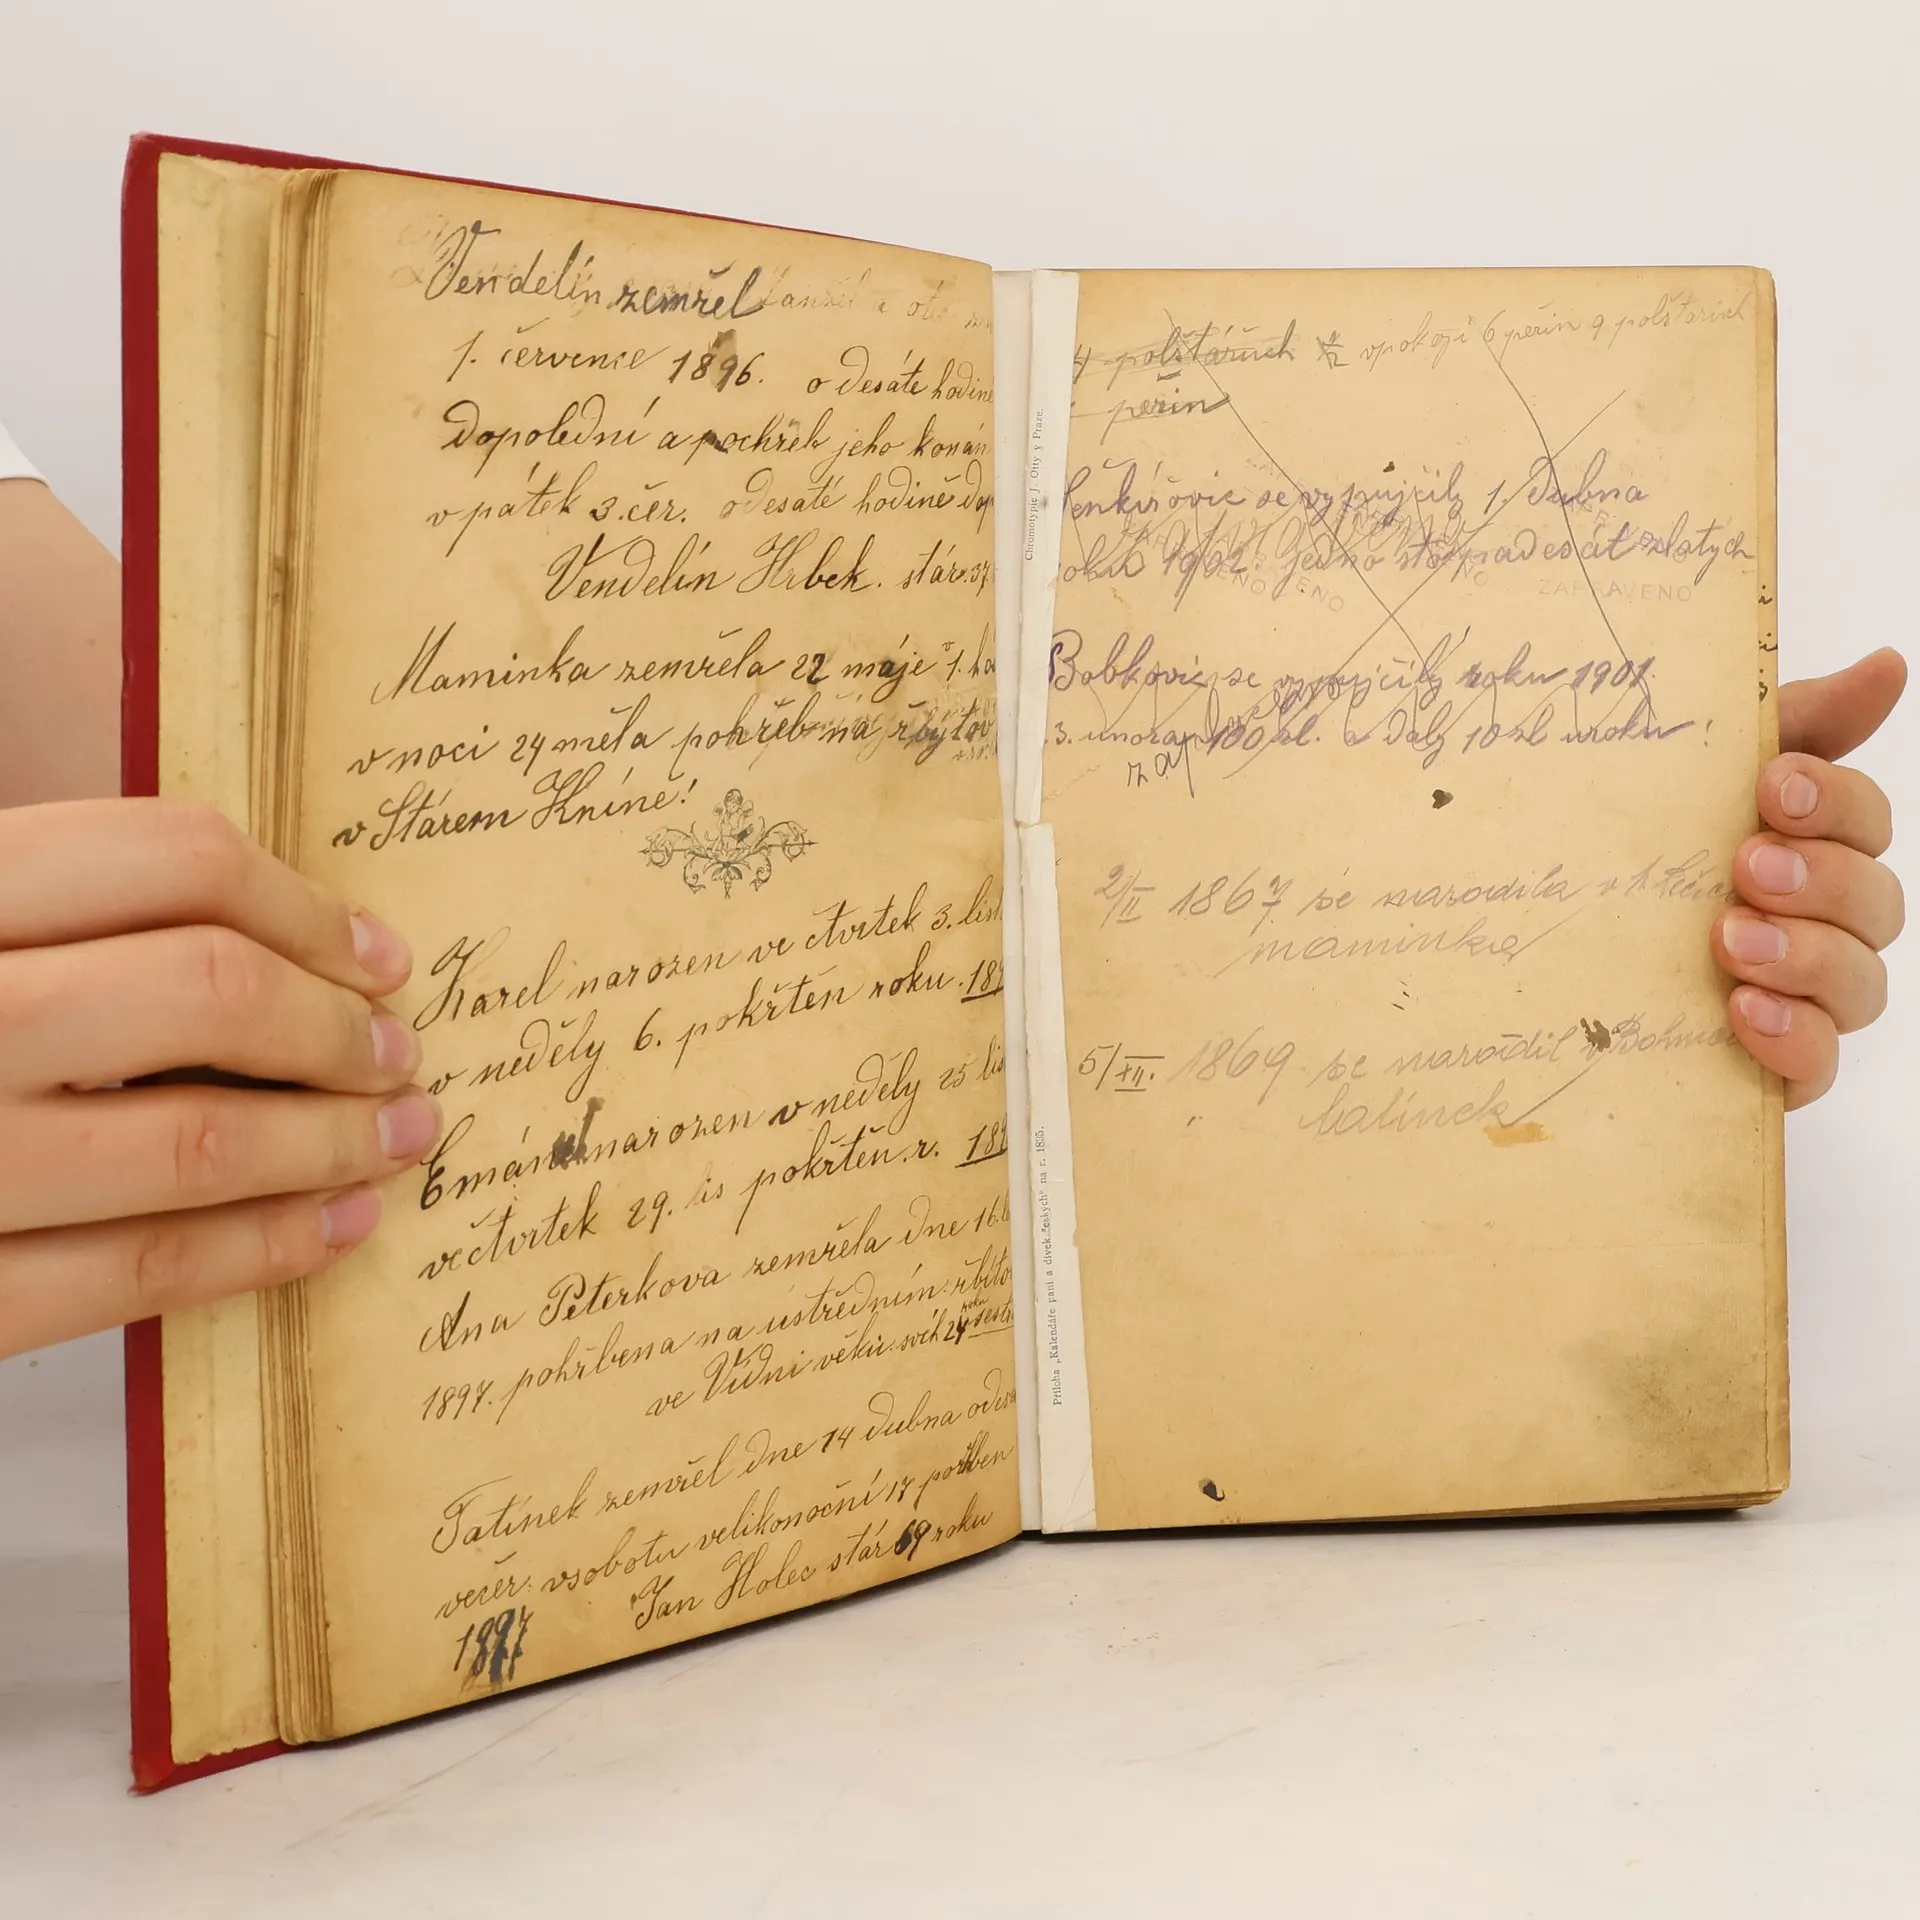 Vendelín zemřel
1. července 1896. o desáté hodině
dopolední a pohřeb jeho konán
v pátek 3. čer. o desaté hodině dop
Vendelín Hrbek. stár. 37
Maminka zemřela 22 máje v 1. ho
v noci 24 měla pohřeb na
v Stárem Kníně!
Karel narozen ve čtvrtek 3. list
v neděly 6. pokřtěn roku. 189
Emánuel narozen v neděly 25 lis
ve čtvrtek 29. lis pokřtěn. r. 189
Ana Peterkova zemřela dne 16.
1897. pohřbena na ústředním. řbito
ve Vídni věku. svíh 24 roku sest
Tatínek zemřel dne 14 dubna odesa
večer. v sobotu velikonoční 17 pořben
Jan Holec stár 69 roku
1897
Chromotypie J. Otty v Praze.
Příloha „Kalendáře paní a dívek českých" na r. 1895.
4 polštářích v pokoji 6 peřin 9 polštářích
peřin
se vypujčily 1. dubna
roku 1902. jedno sto padesát zlatych
ZAPRAVENO
Bobkovic se vypujčily roku 1901.
3. unora 100 zl. a daly 10 zl uroku!
2/II 1867 se narodila v
maminka
5/XII. 1869 se narodil v
tatínek